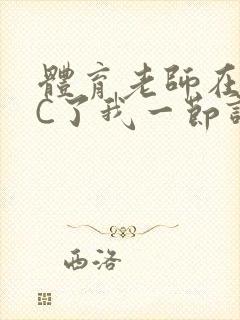 體育老師在
C了我一節
西洛